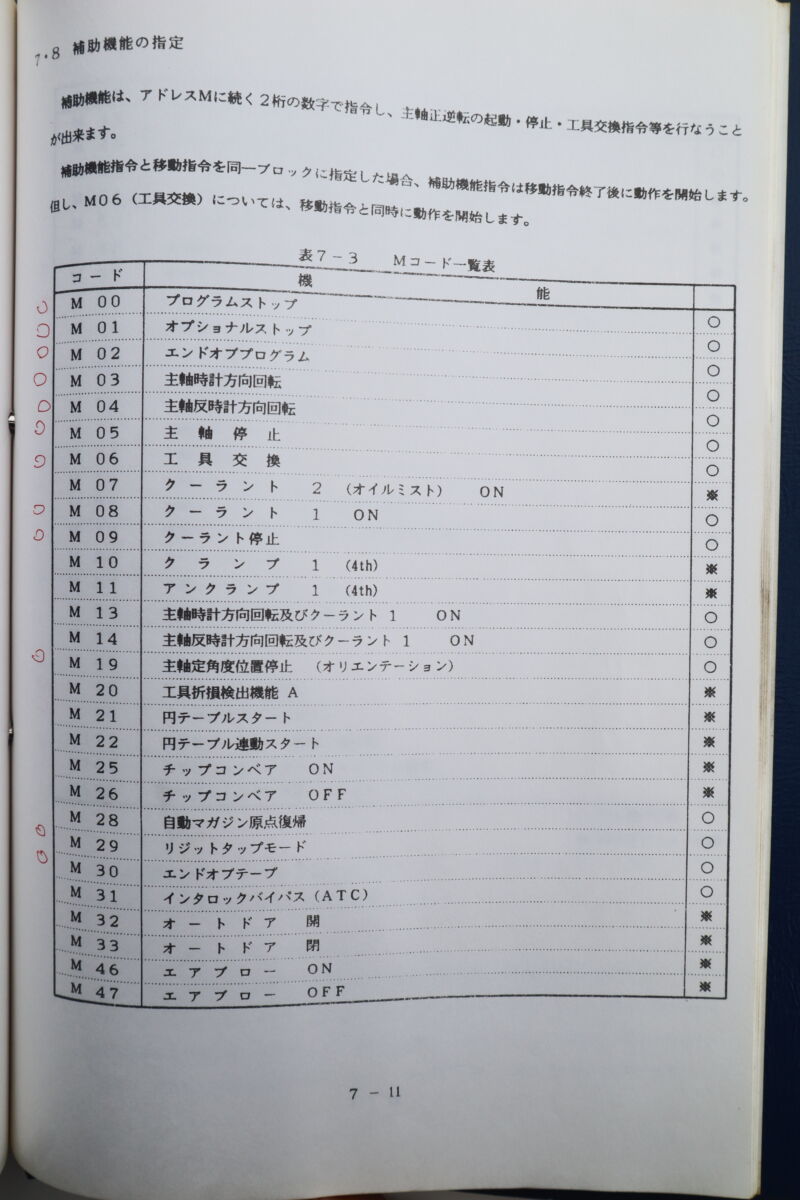 7・8 補助機能の指定
補助機能は、アドレスMに続く2桁の数字で指令し、主軸正逆転の起動・停止・工具交換指令等を行なうこと
が出来ます。
補助機能指令と移動指令を同一ブロックに指定した場合、補助機能指令は移動指令終了後に動作を開始します。
但し、M06（工具交換）については、移動指令と同時に動作を開始します。
表7－3　Mコード一覧表
コード 機 能
M 00 プログラムストップ ○
M 01 オプショナルストップ ○
M 02 エンドオブプログラム ○
M 03 主軸時計方向回転 ○
M 04 主軸反時計方向回転 ○
M 05 主軸停止 ○
M 06 工具交換 ○
M 07 クーラント 2 （オイルミスト） ON ※
M 08 クーラント 1 ON ○
M 09 クーラント停止 ○
M 10 クランプ 1 (4th) ※
M 11 アンクランプ 1 (4th) ※
M 13 主軸時計方向回転及びクーラント 1 ON ○
M 14 主軸反時計方向回転及びクーラント 1 ON ○
M 19 主軸定角度位置停止 （オリエンテーション） ○
M 20 工具折損検出機能 A ※
M 21 円テーブルスタート ※
M 22 円テーブル連動スタート ※
M 25 チップコンベア ON ※
M 26 チップコンベア OFF ※
M 28 自動マガジン原点復帰 ○
M 29 リジットタップモード ○
M 30 エンドオブテープ ○
M 31 インタロックバイパス（ATC） ○
M 32 オートドア 開 ※
M 33 オートドア 閉 ※
M 46 エアブロー ON ※
M 47 エアブロー OFF ※
7 － 11